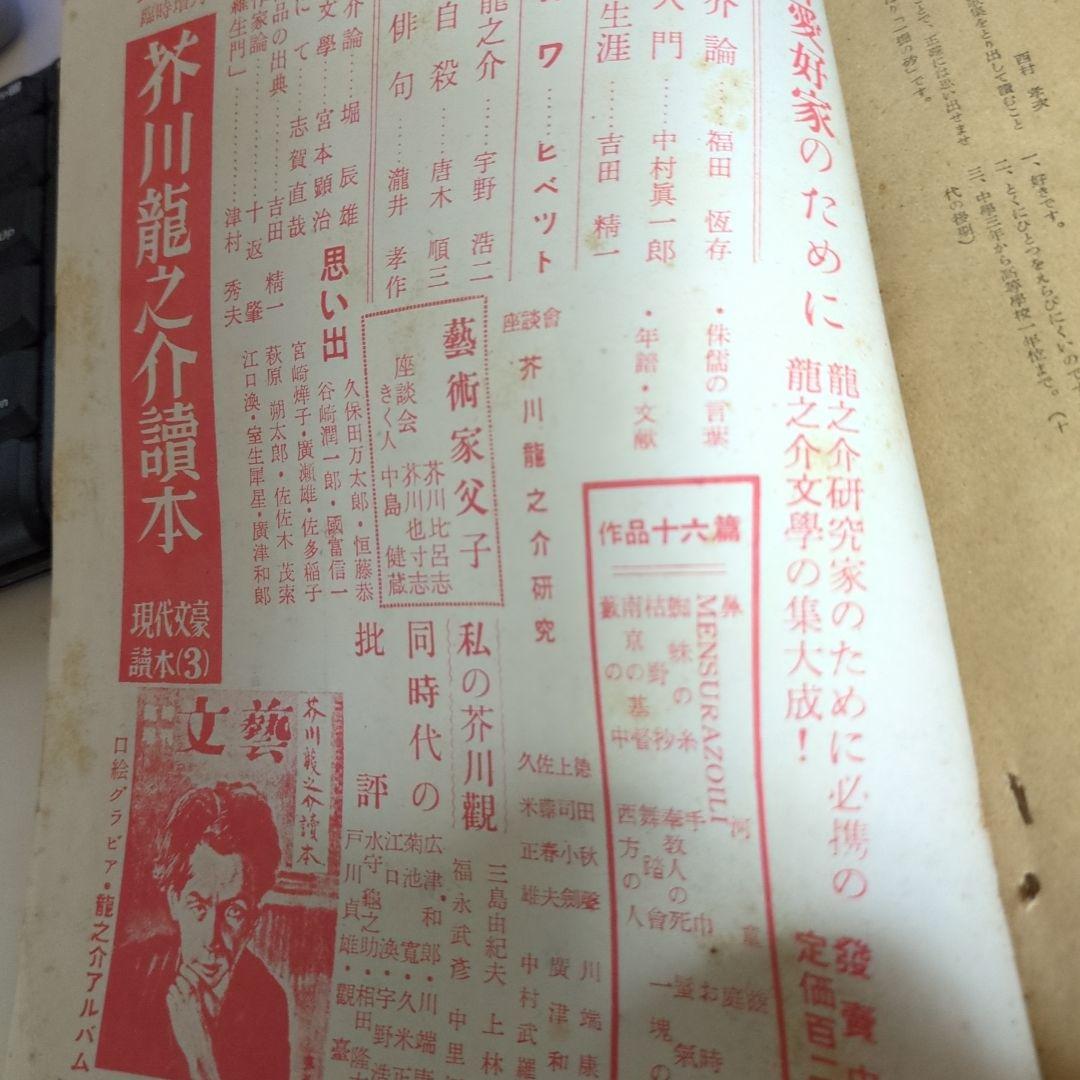 一、好きです。
二、とくにひとつをえらびにくいので
三、中學三年から高等學校一年位まで。(十
代の後期)
西村孝次
愛好家のために
龍之介研究家のために必携の
龍之介文學の集大成!
發賣
定価百二
介論……福田恆存
入門……中村眞一郎
生涯……吉田精一
・侏儒の言葉
・年譜・文献
作品十六篇
鼻
MENSURAZOILI
蜘蛛の糸
枯野抄
南京の基督
藪の中
河童
手巾
奉教人の死
舞踏會
西方の人
お時
蜃氣
一塊の
ワ ヒベット
座談會 芥川龍之介研究
徳田秋聲
上司小劍
佐藤春夫
久米正雄
川端康
廣津和
中村武羅
龍之介……宇野浩二
自殺……唐木順三
俳句……瀧井孝作
藝術家父子
座談会 芥川比呂志
芥川也寸志
きく人 中島健蔵
私の芥川觀
三島由紀夫 上林
福永武彦 中里
同時代の
批評
広津和郎・川端康
菊池寛・久米正
江口渙・宇野浩
水守龜之助・相田隆太
戸川貞雄・觀臺
介論……堀辰雄
文學……宮本顕治
にて……志賀直哉
品の出典……吉田精一
作家論……十返肇
羅生門」……津村秀夫
思い出
久保田万太郎・恒藤恭
谷崎潤一郎・國富信一
宮崎燁子・廣瀬雄・佐多稲子
萩原朔太郎・佐佐木茂索
江口渙・室生犀星・廣津和郎
臨時増刊
芥川龍之介讀本
現代文豪
讀本(3)
文藝
芥川龍之介讀本
口絵グラビア・龍之介アルバム